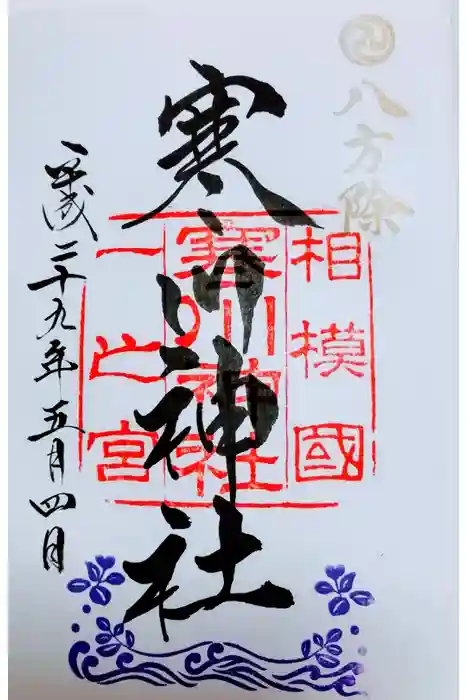 八方除
相模國
寒川神社
一之宮
寒川神社
平成二十九年五月四日